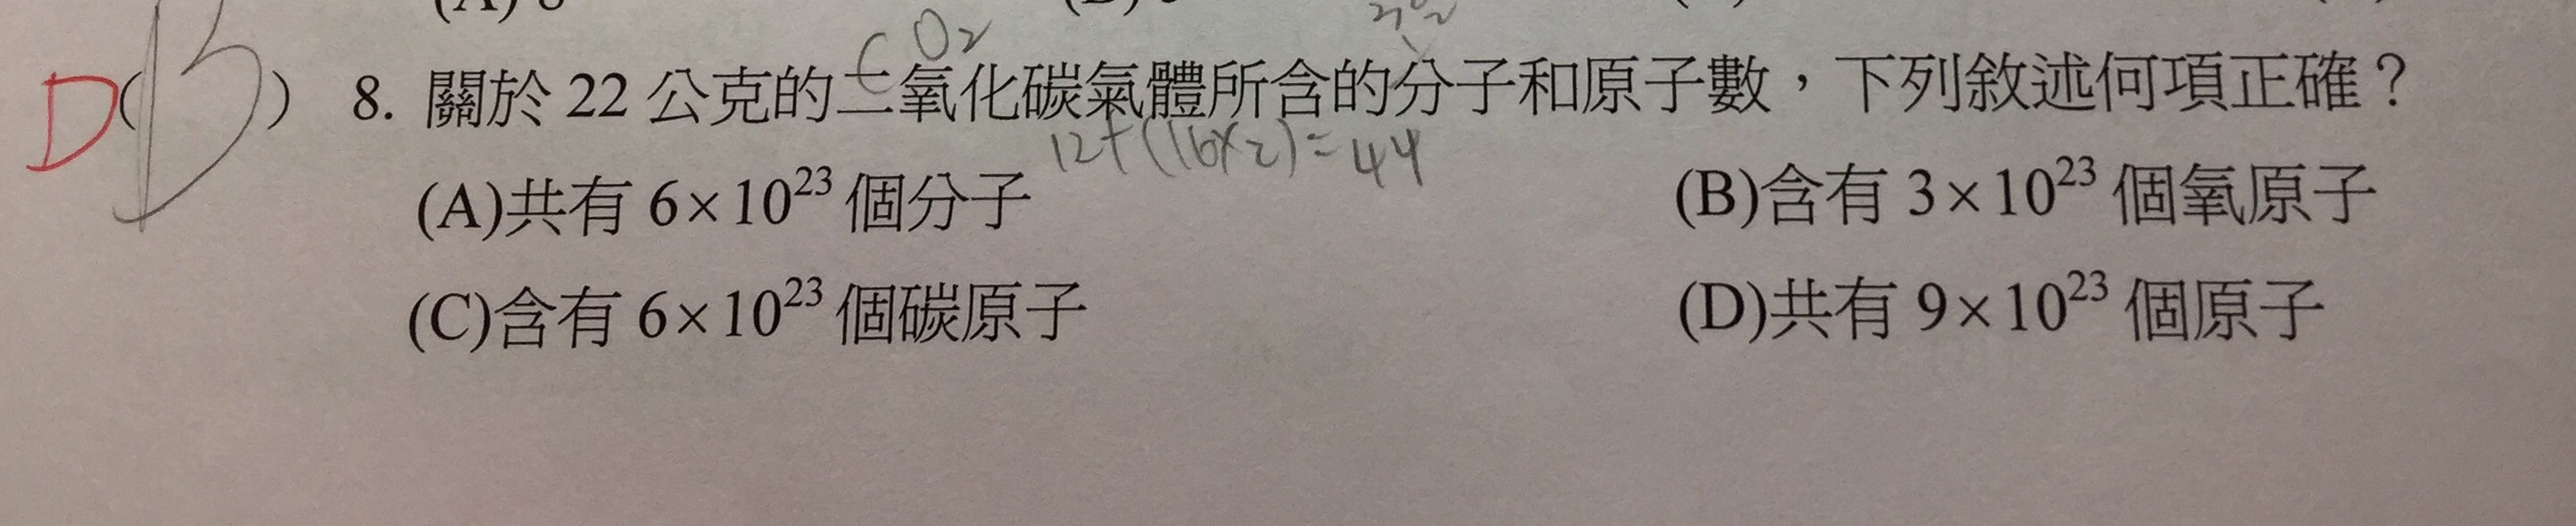 CO₂
D( B ) 8. 關於 22 公克的二氧化碳氣體所含的分子和原子數，下列敘述何項正確？
12+(16×2)=44
(A)共有 6×10²³ 個分子 (B)含有 3×10²³ 個氧原子
(C)含有 6×10²³ 個碳原子 (D)共有 9×10²³ 個原子